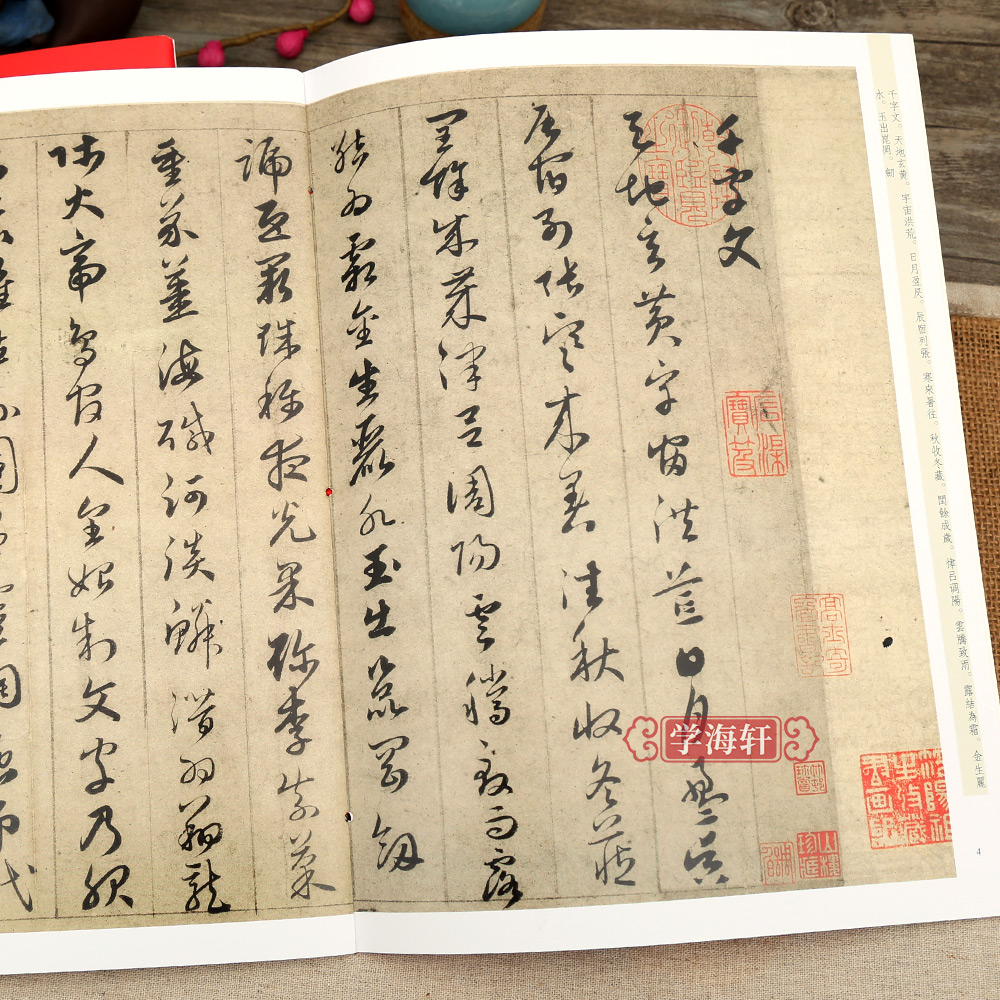 千字文。天地玄黄。宇宙洪荒。日月盈昃。辰宿列張。寒來暑往。秋收冬藏。閏餘成歲。律吕调陽。雲騰致雨。露結為霜。金生麗
水。玉出崑岡。劒
4
千字文
天地玄黄宇宙洪荒日月盈昃
辰宿列張寒来暑往秋收冬藏
閏餘成歲律吕調陽雲騰致雨露
結為霜金生麗水玉出崑岡劒
號巨闕珠稱夜光果珍李柰菜
重芥薑海醎河淡鱗潜羽翔龍
師火帝鳥官人皇始制文字乃服
学海轩